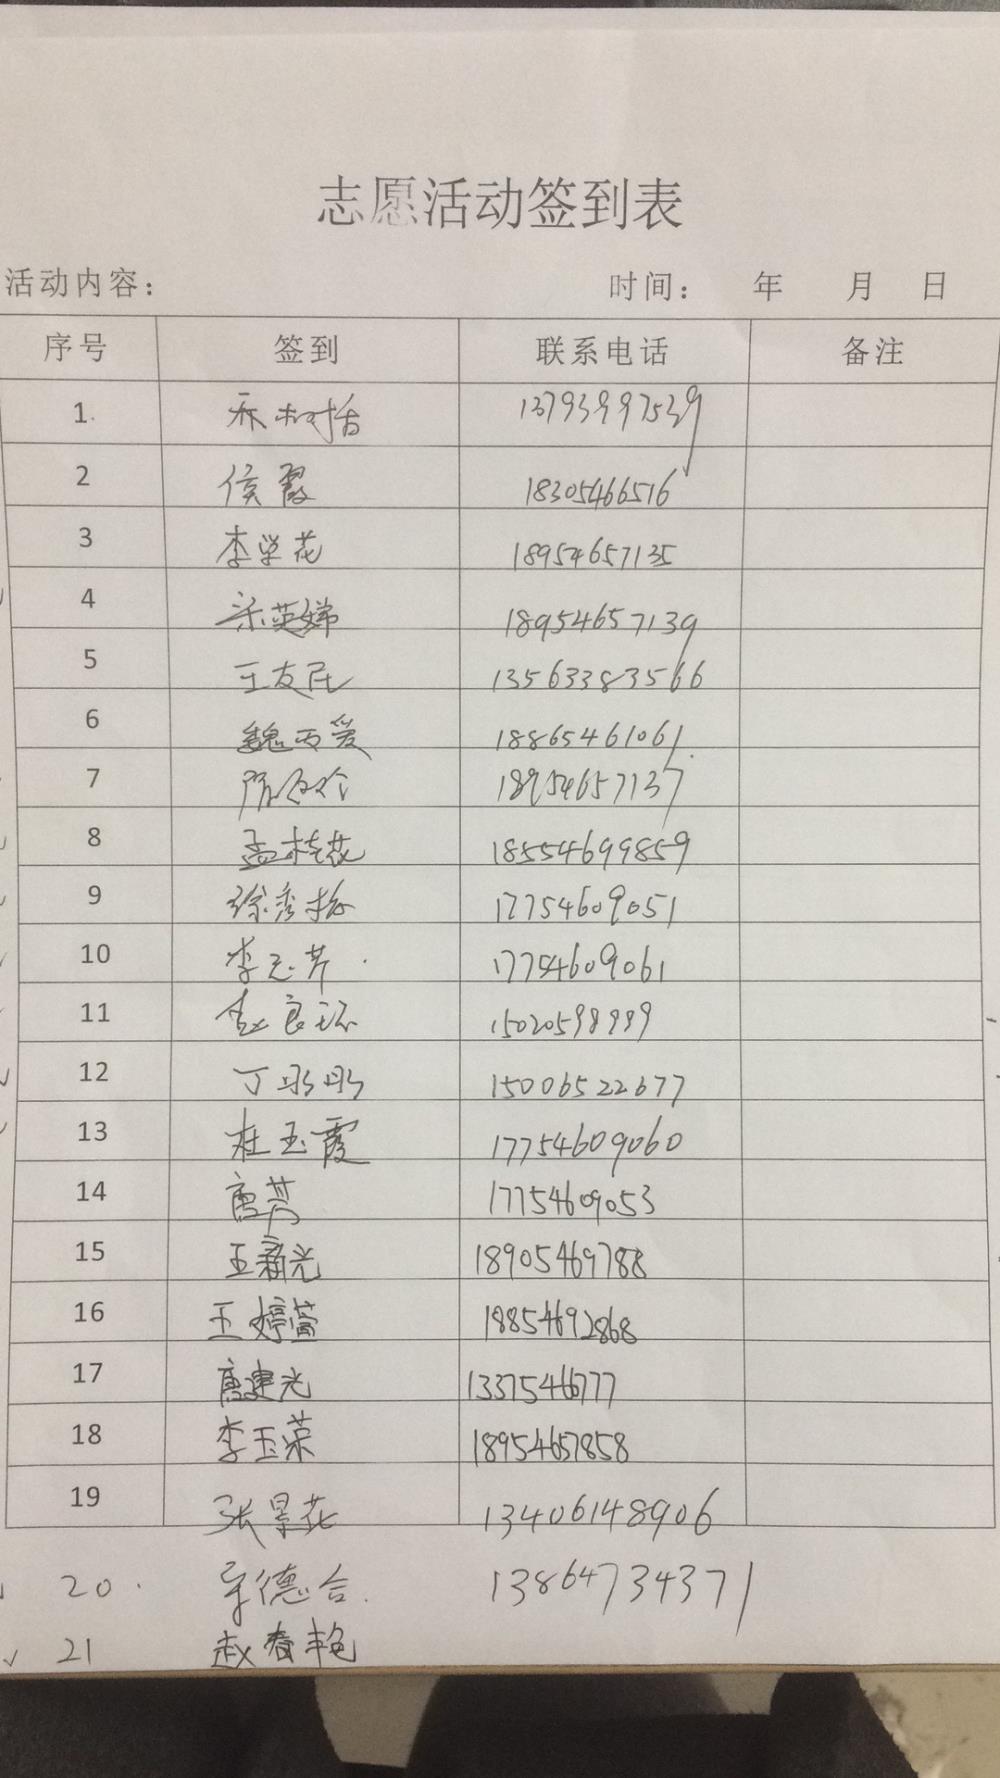 志愿活动签到表
活动内容： 时间： 年 月 日
序号 签到 联系电话 备注
1. 13793997539
2 侯霞 18305466516
3 李学花 18954657135
4 宋英娣 18954657139
5 王友民 13563383566
6 魏丙爱 18865461061
7 18954657137
8 孟桂花 18554699859
9 徐秀梅 17754609051
10 李志芹 17754609061
11 赵良环 15020598999
12 丁彤彤 15006522677
13 杜玉霞 17754609060
14 唐芳 17754609053
15 王新光 18905469788
16 王婷蕾 18854692868
17 唐建光 13375466777
18 李玉荣 18954657858
19 张景花 13406148906
20 德合 13864734371
21 赵春艳